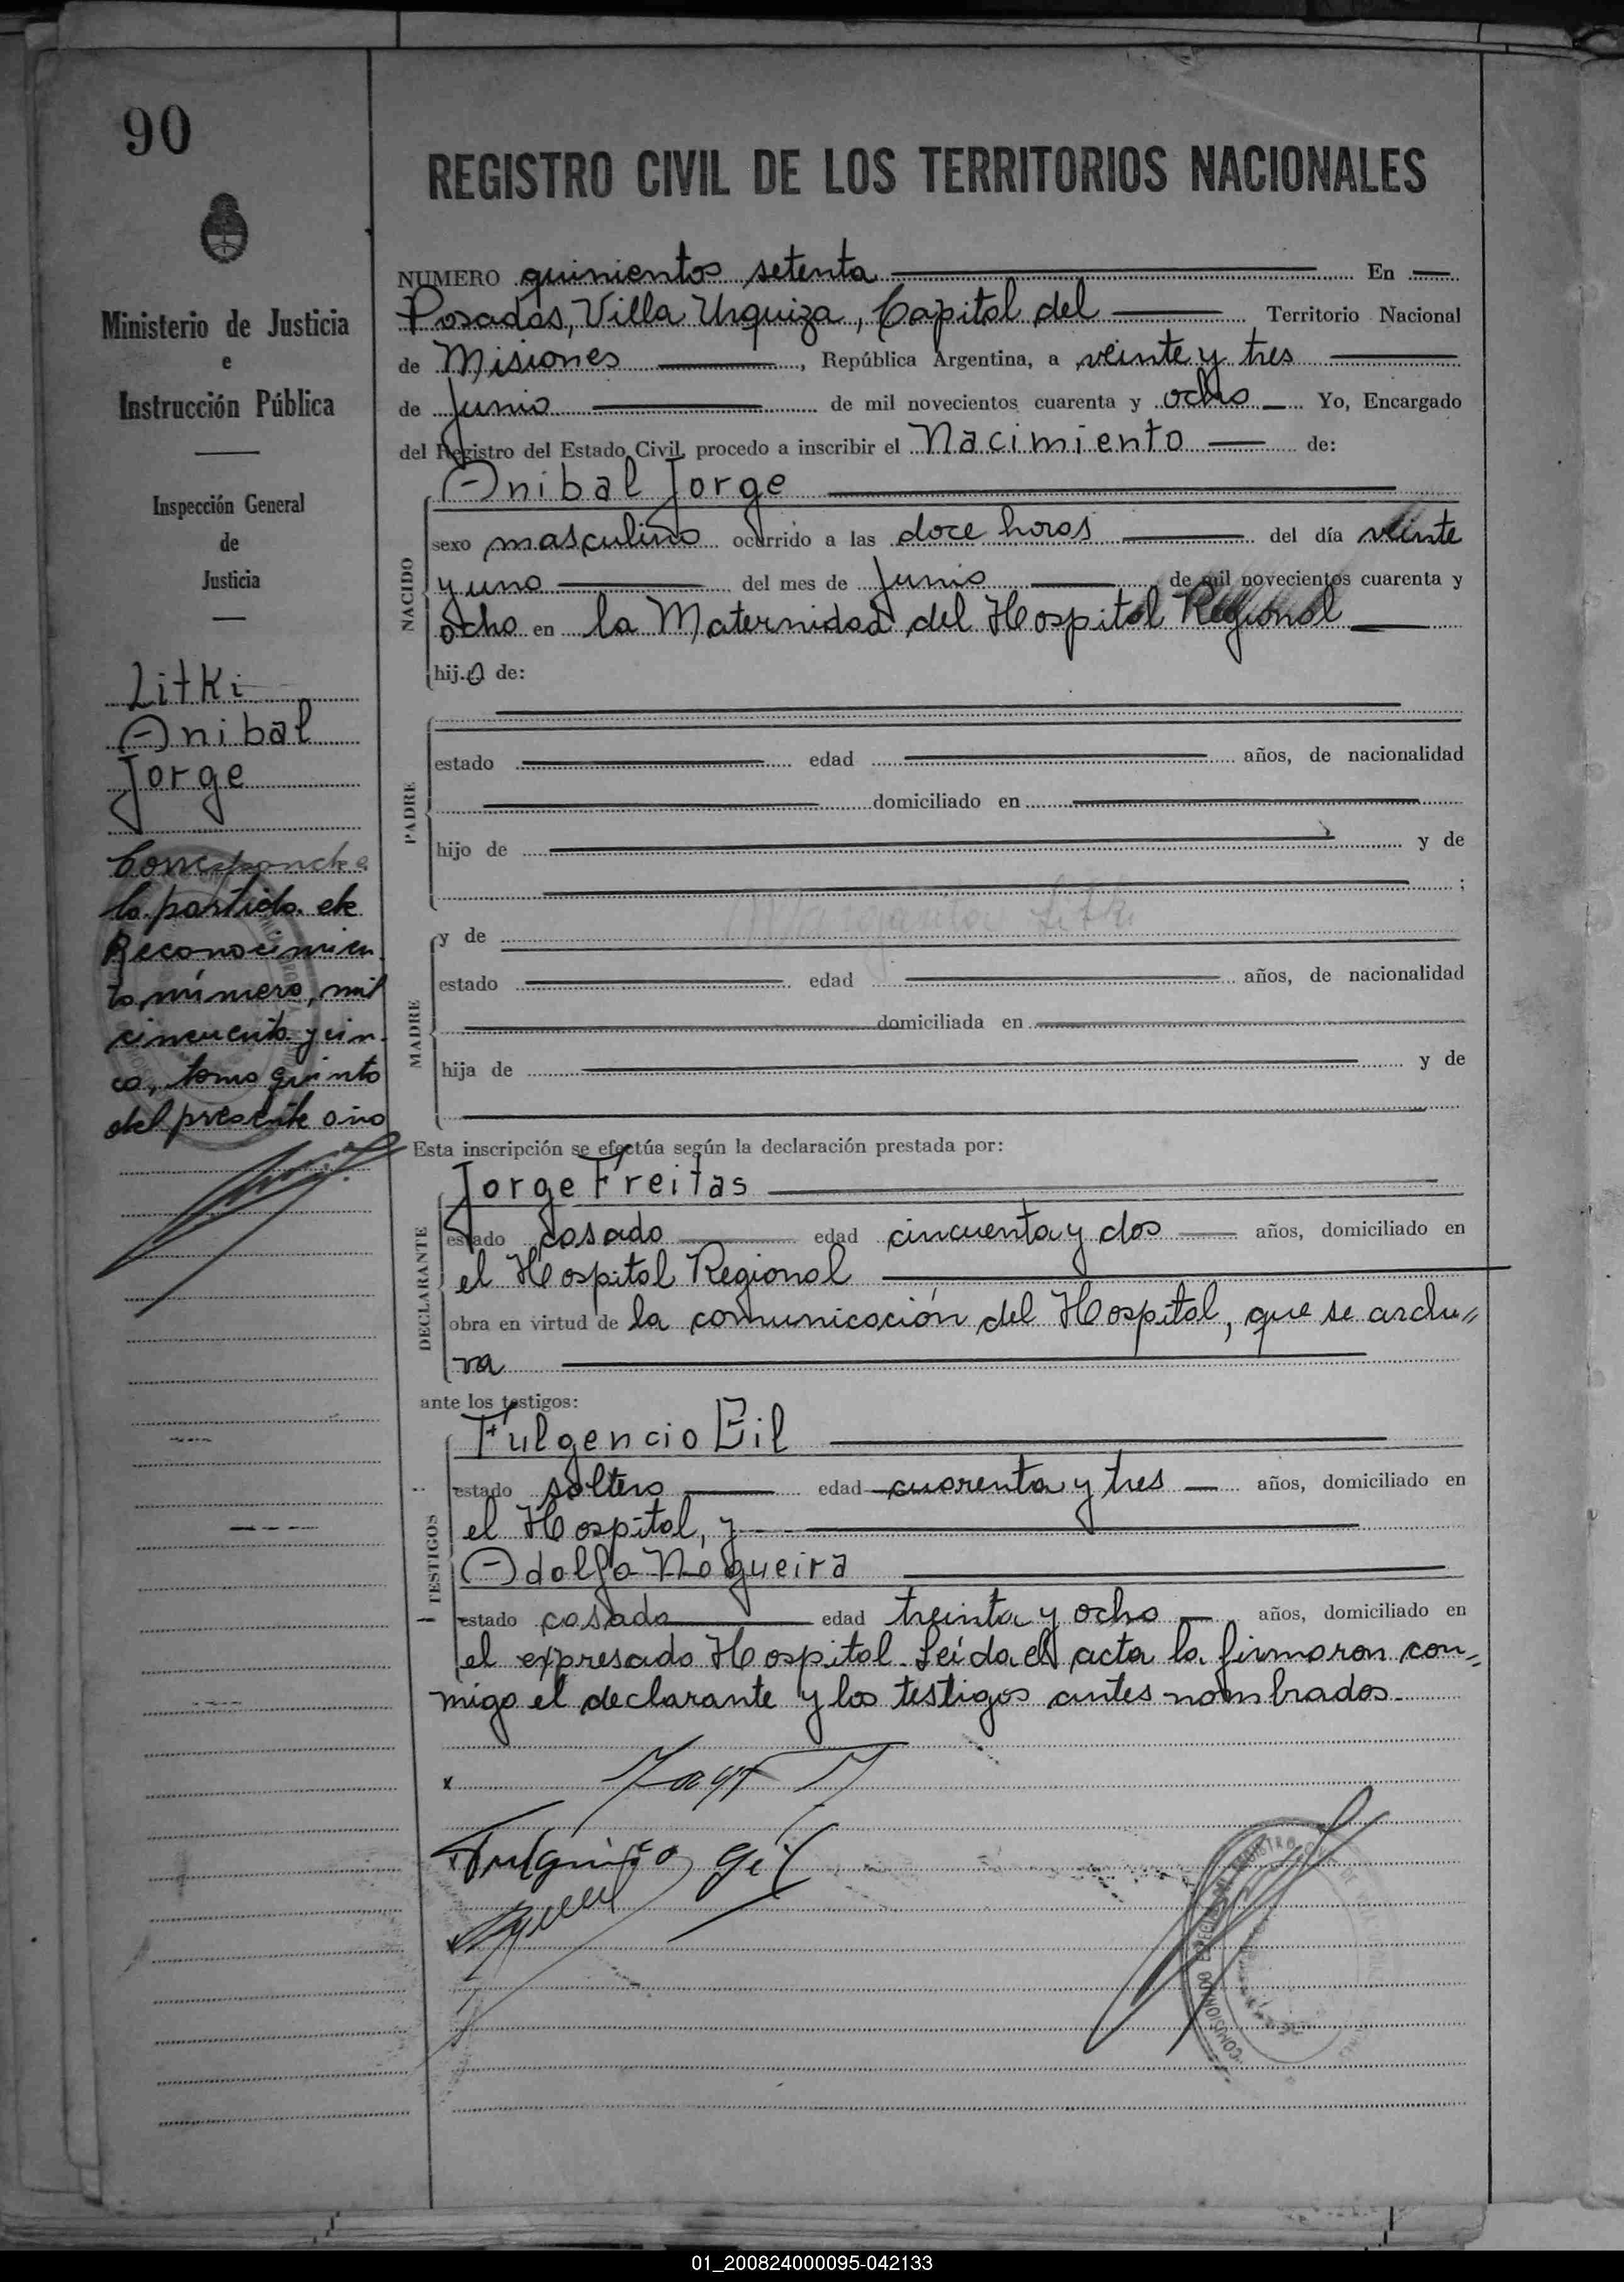 90
REGISTRO CIVIL DE LOS TERRITORIOS NACIONALES
Ministerio de Justicia
e
Instrucción Pública
Inspección General
de
Justicia
Litki
Anibal
Jorge
Corresponde a
la partida de
Reconocimien
to, número, mil
cincuenta y cin-
co, tomo quinto
del presente año
NUMERO quinientos setenta En
Posadas, Villa Urquiza, Capital del Territorio Nacional
de Misiones, República Argentina, a veinte y tres
de Junio de mil novecientos cuarenta y ocho Yo, Encargado
del Registro del Estado Civil, procedo a inscribir el Nacimiento de:
Anibal Jorge
NACIDO
sexo masculino ocurrido a las doce horas del día veinte
y uno del mes de Junio de mil novecientos cuarenta y
ocho en la Maternidad del Hospital Regional
hijo de:
PADRE
estado edad años, de nacionalidad
domiciliado en
hijo de y de
;
MADRE
y de Litki
estado edad años, de nacionalidad
domiciliada en
hija de y de
Esta inscripción se efectúa según la declaración prestada por:
DECLARANTE
Jorge Freitas
estado casado edad cincuenta y dos años, domiciliado en
el Hospital Regional
obra en virtud de la comunicación del Hospital, que se archi〃
va
ante los testigos:
TESTIGOS
Fulgencio Gil
estado soltero edad cuarenta y tres años, domiciliado en
el Hospital, y
Adolfo Nogueira
estado casado edad treinta y ocho años, domiciliado en
el expresado Hospital. Leída el acta la firmaron con-
migo el declarante y los testigos antes nombrados.
x
Fulgencio Gil
01_200824000095-042133